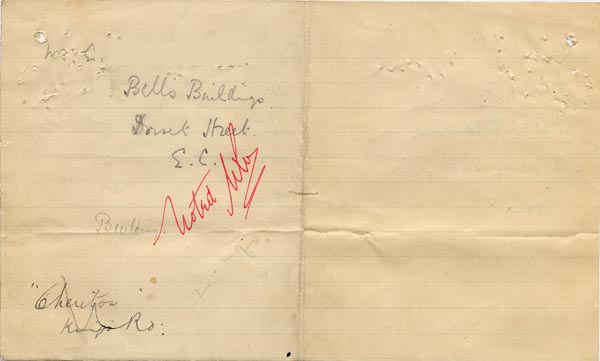 Mrs E.
Bell's Buildings
Dorset Street.
E. C.
Noted
Building
"Cheriton"
Kings Rd: